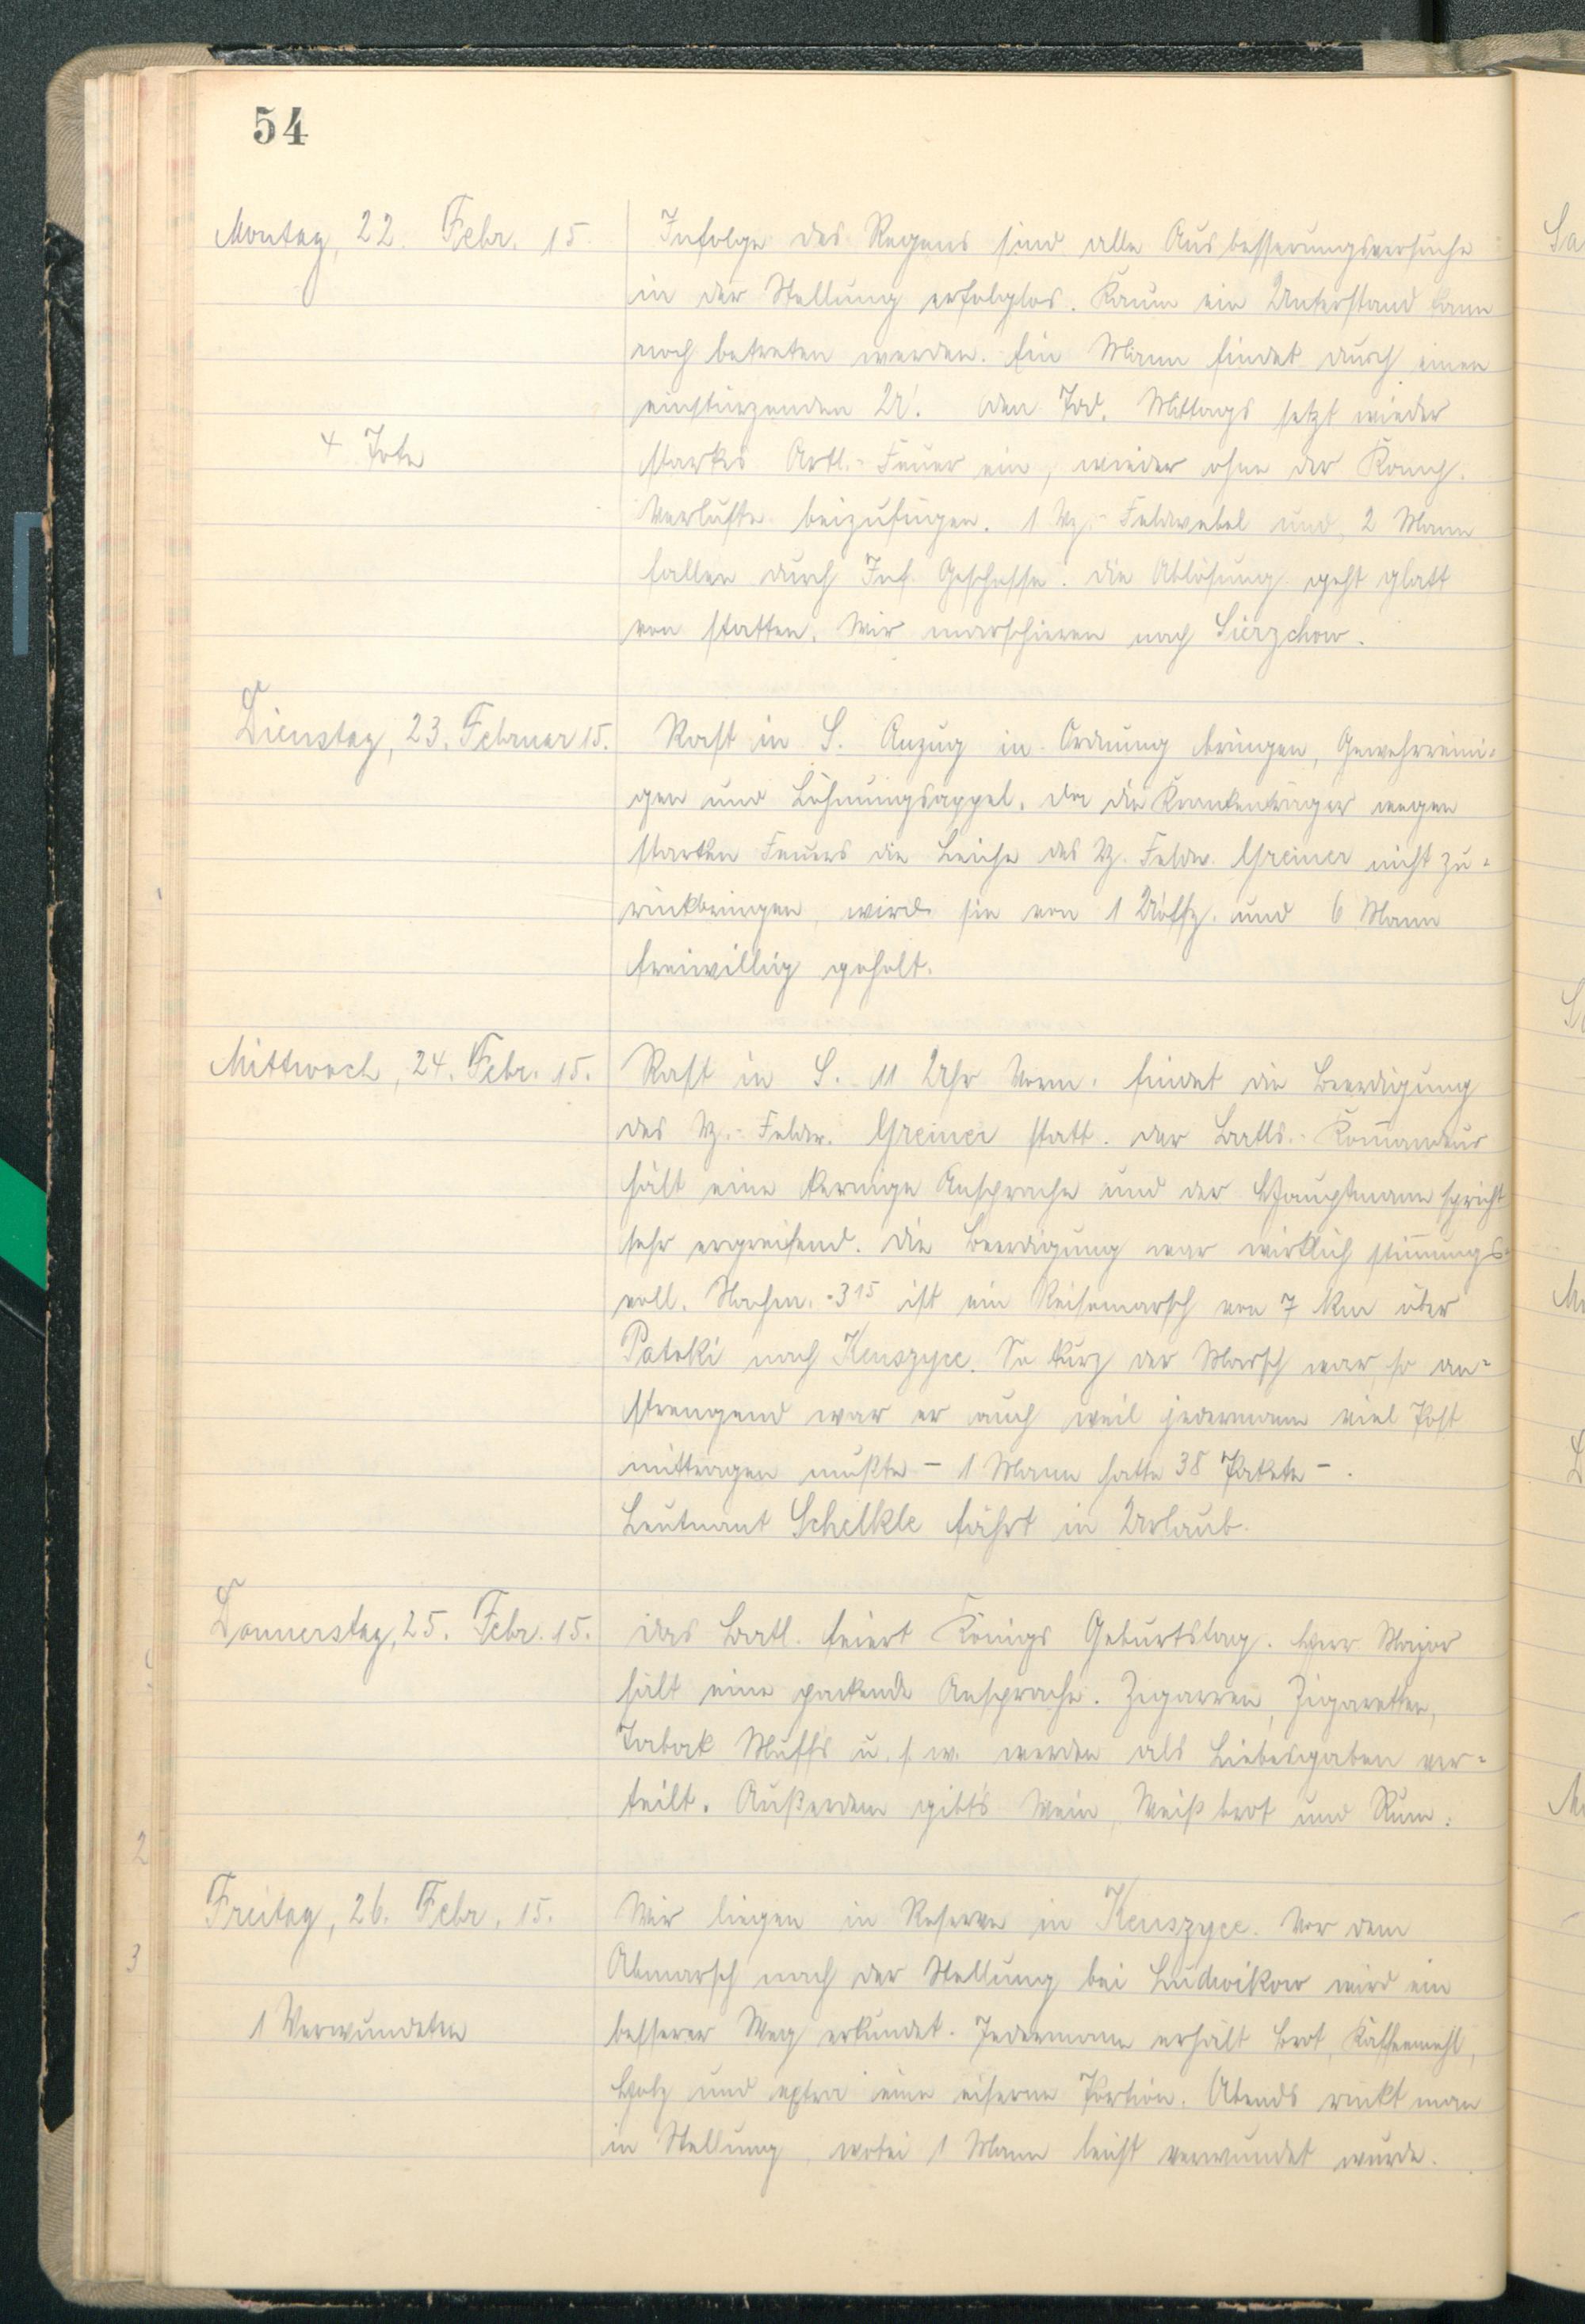 54
Montag, 22. Febr. 15.
Infolge des Regens sind alle Ausbesserungsversuche
in der Stellung erfolglos. Kaum ein Unterstand kann
noch betreten werden. Ein Mann findet durch einen
einstürzenden U. den Tod. Mittags setzt wieder
4 Tote
starkes Artl.-Feuer ein, wieder ohne der Komp.
Verluste beizufügen. 1 Vz.-Feldwebel und 2 Mann
fallen durch Inf. Geschosse. Die Ablösung geht glatt
von statten. Wir marschieren nach Sierzchow.
Dienstag, 23. Februar 15.
Rast in S. Anzug in Ordnung bringen, Gewehrreini-
gen und Löhnungsappel. Da die Krankenträger wegen
starken Feuers die Leiche des Vz. Feldw. Greiner nicht zu-
rückbringen, wird sie von 1 Uoffz. und 6 Mann
freiwillig geholt.
Mittwoch, 24. Febr. 15.
Rast in S. 11 Uhr Vorm. findet die Beerdigung
des Vz.-Feldw. Greiner statt. Der Batls.-Komandeur
hält eine kernige Ansprache und der Hauptmann spricht
sehr ergreifend. Die Beerdigung war wirklich stimungs-
voll. Nachm. 3 15 ist ein Reisemarsch von 7 km über
Patoki nach Kenszyce. So kurz der Marsch war, so an-
strengend war er auch weil jedermann viel Post
mittragen mußte - 1 Mann hatte 38 Pakete -.
Leutnant Schelkle fährt in Urlaub.
Donnerstag, 25. Febr. 15.
Das Batl. feiert Königs Geburtstag. Herr Major
hält eine packende Ansprache. Zigarren, Zigaretten,
Tabak Muffs u. s. w. werden als Liebesgaben ver-
teilt. Außerdem gibt's Wein, Weißbrot und Rum.
Freitag, 26. Febr. 15.
Wir liegen in Reserve in Kenszyce. Vor dem
Abmarsch nach der Stellung bei Ludwikow wird ein
1 Verwundeten
besserer Weg erkundet. Jedermann erhält Brot, Kaffeemehl,
Holz und extra eine eiserne Portion. Abends rückt man
in Stellung, wobei 1 Mann leicht verwundet wurde.